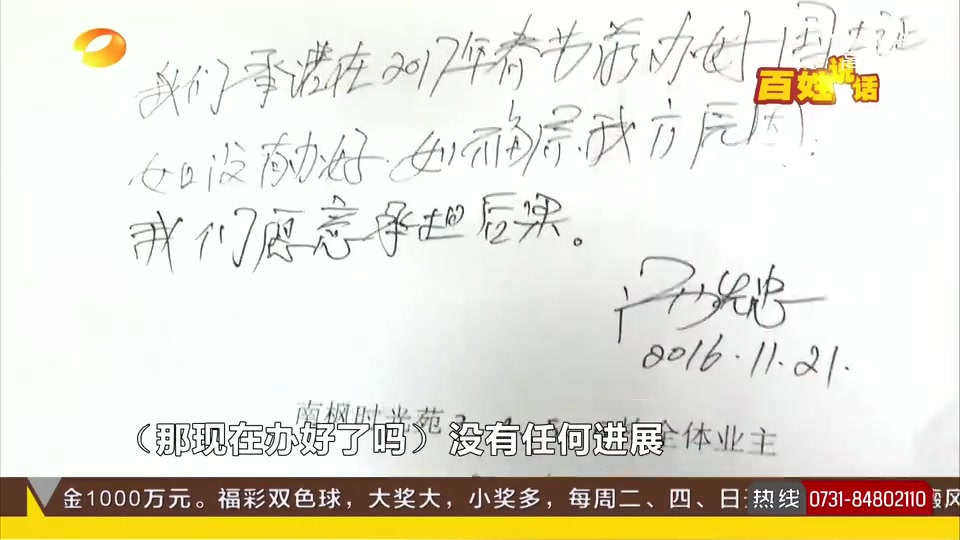 我们承诺在2017年春节前办好国土证
百姓说话
如没有办好.如不偏属我方原因.
我们愿意承担后果。
2016.11.21.
南枫时光苑
全体业主
（那现在办好了吗）没有任何进展
金1000万元。福彩双色球，大奖大，小奖多，每周二、四、日
热线 0731-84802110